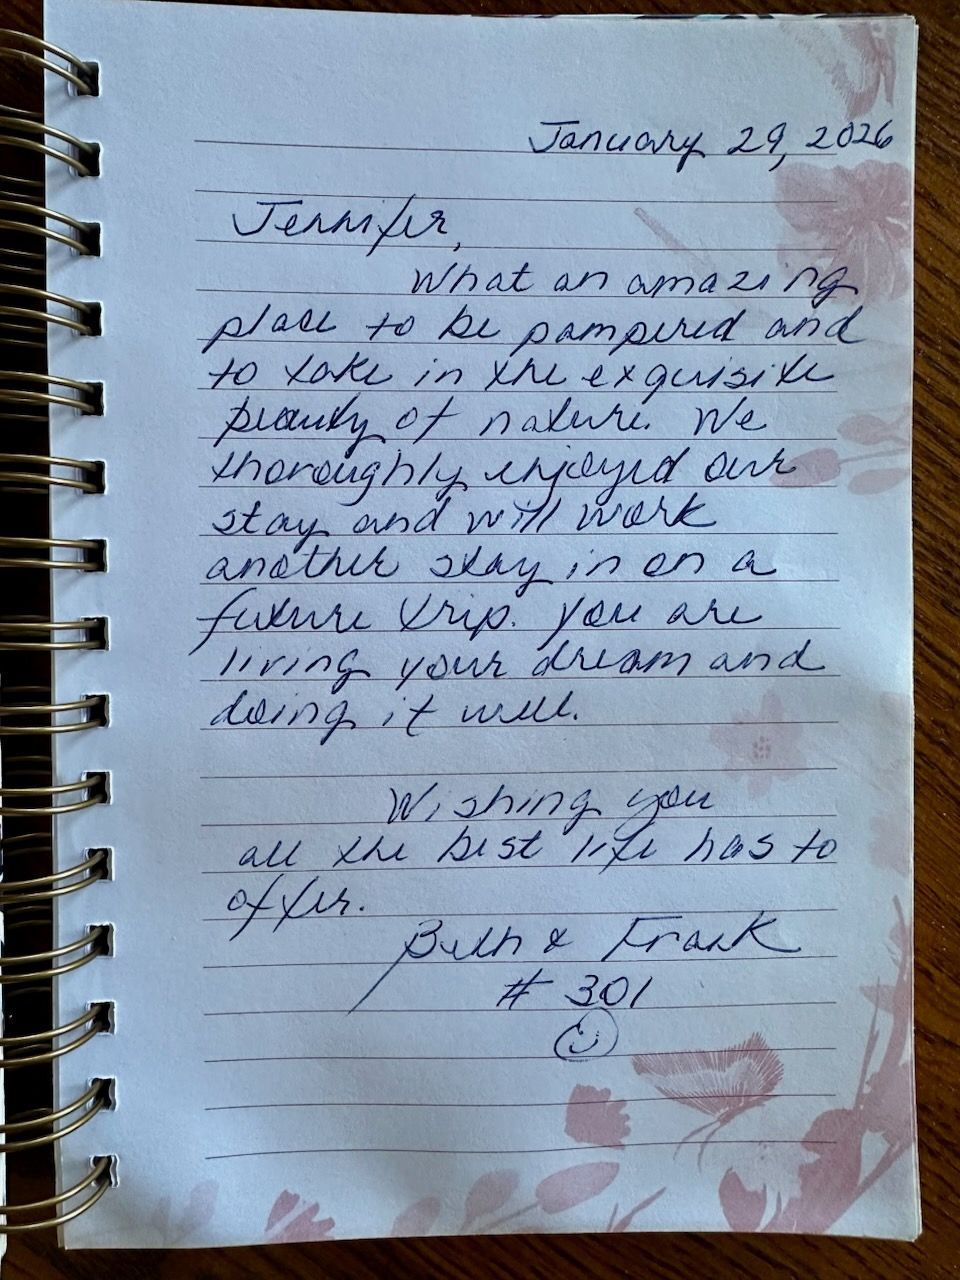 January 29, 2026
Jennifer,
What an amazing
place to be pampered and
to take in the exquisite
beauty of nature. We
thoroughly enjoyed our
stay and will work
another stay in on a
future trip. You are
living your dream and
doing it well.
Wishing you
all the best life has to
offer.
Beth & Frank
# 301